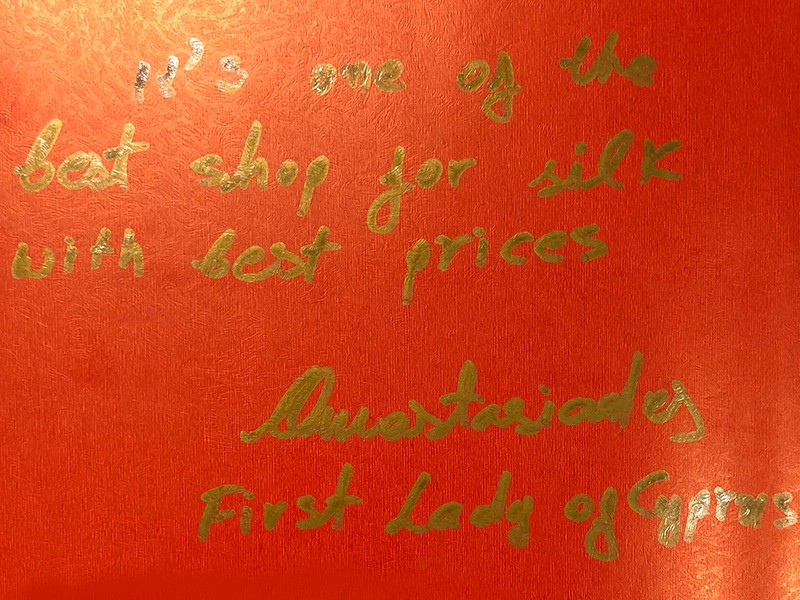 It's one of the
best shop for silk
with best prices
Anastasiades
First Lady of Cyprus